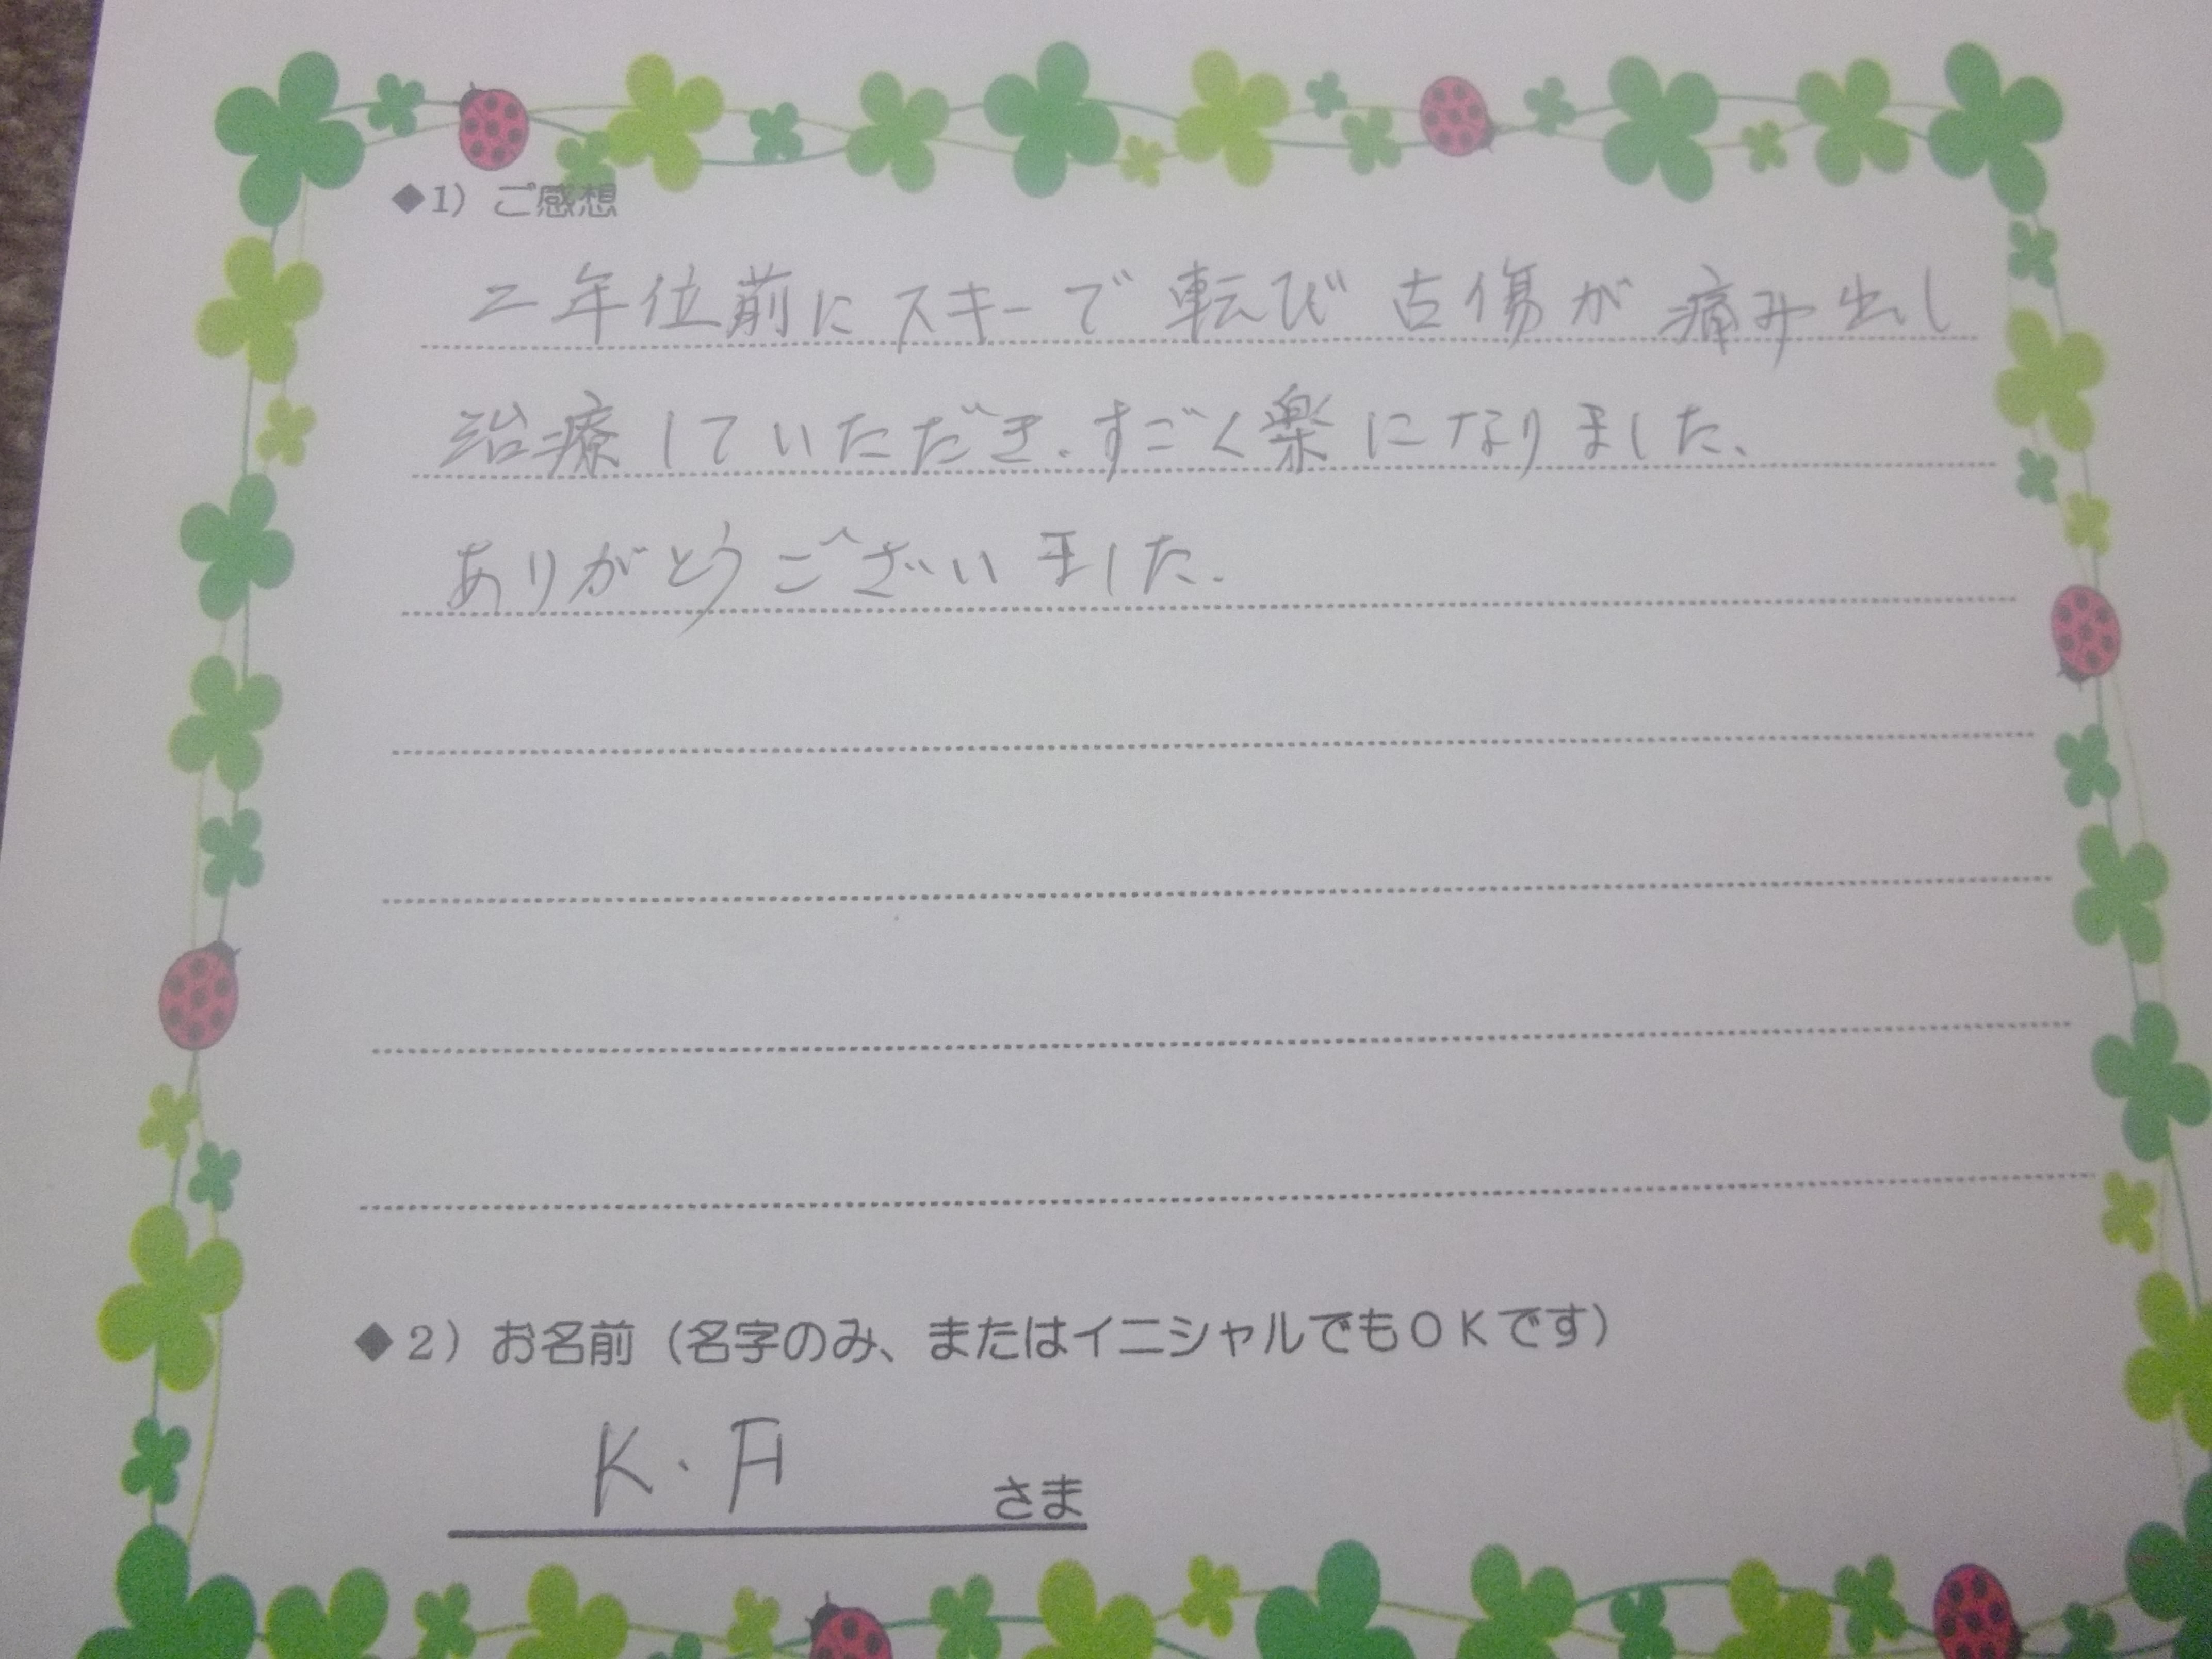 ◆1）ご感想
二年位前にスキーで転び古傷が痛み出し
治療していただき、すごく楽になりました、
ありがとうございました.
◆2）お名前（名字のみ、またはイニシャルでもＯＫです）
K・
さま